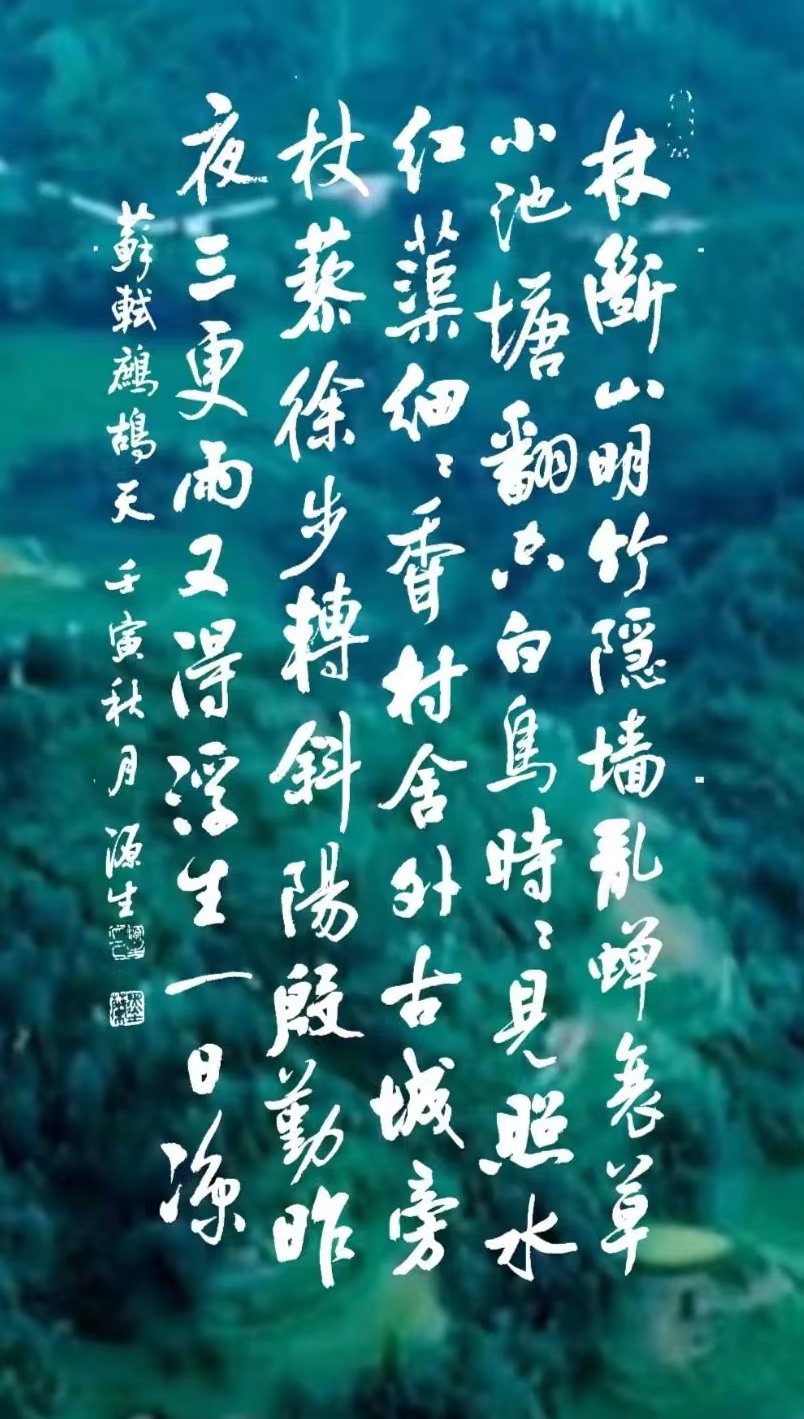 林斷山明竹隐墙亂蝉衰草
小池塘翻空白鳥時〻見照水
红蕖细〻香村舍外古城旁
杖藜徐步轉斜陽殷勤昨
夜三更雨又得浮生一日凉
蘇軾鷓鴣天 壬寅秋月 源生